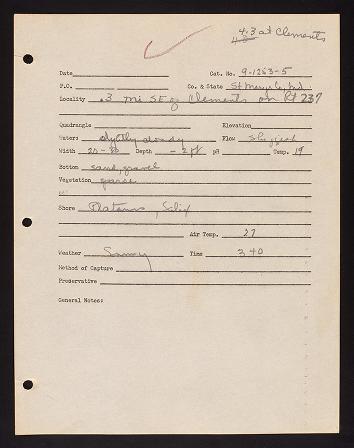 4.3 at Clements
Date Cat. No. 9-1253-5
P.O. Co. & State St Marys Co, Md.
Locality .3 mi SE of Clements on Rt 237
Quadrangle Elevation
Water: slightly cloudy Flow sluggish
Width 20-30 Depth - 2 ft pH Temp. 19
Bottom sand, gravel
Vegetation sparse
Shore Platanus, Salix
Air Temp. 27
Weather Sunny Time 3 40
Method of Capture
Preservative
General Notes: